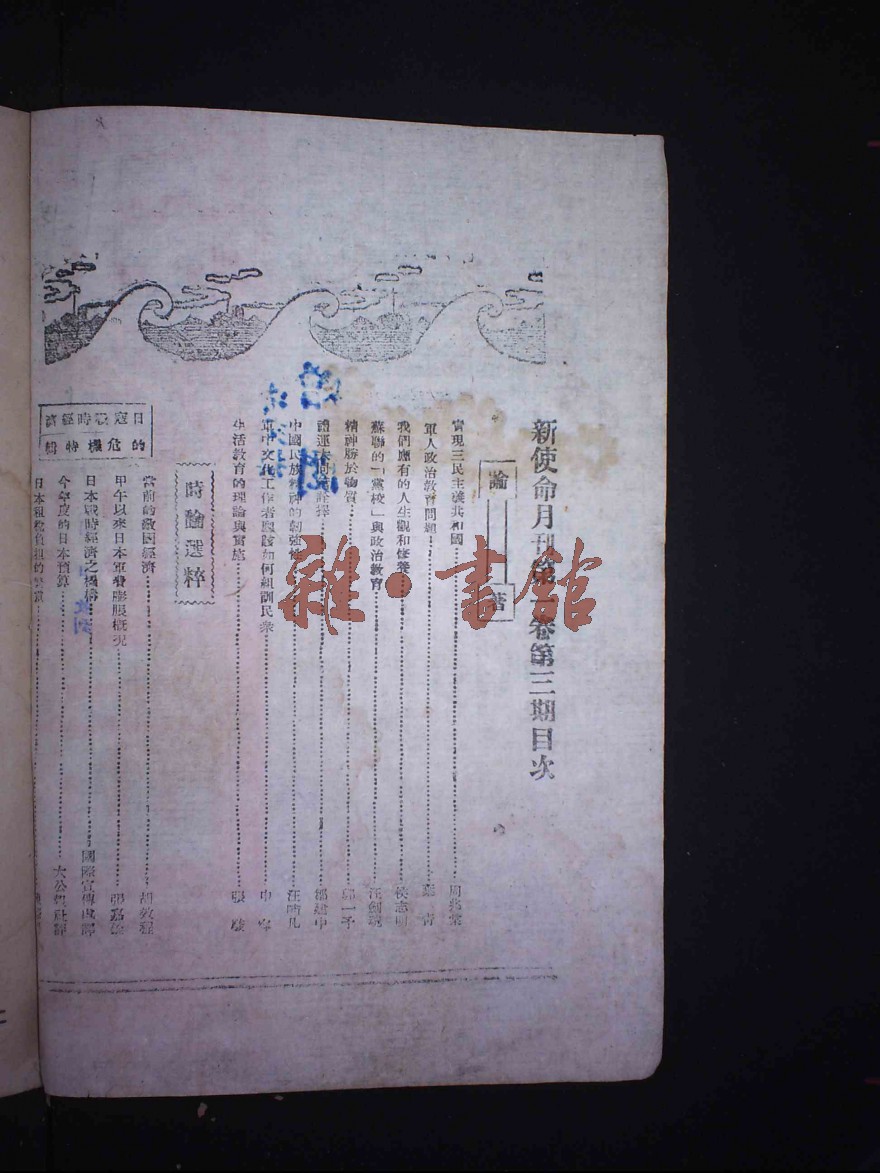 新使命月刊第一卷第三期目次
論著
實現三民主義共和國
軍人政治教育問題 葉青
我們應有的人生觀和修養 侯志明
蘇聯的「黨校」與政治教育 汪劍魂
精神勝於物質 鄧一予
禮運大同 詮擇
中國民族精神的韌強性 汪時凡
軍中文化工作者應該如何組訓民眾 中
生活教育的理論與實施 張
時論選粹
日寇戰時經濟
的危機特輯
當前的敵國經濟 胡敦程
甲午以來日本軍費膨脹概況 鄧嘉
日本戰時經濟之機構 國際宣傳處譯
今年度的日本預算 大公報社譯
日本租稅負担的
雜·書館